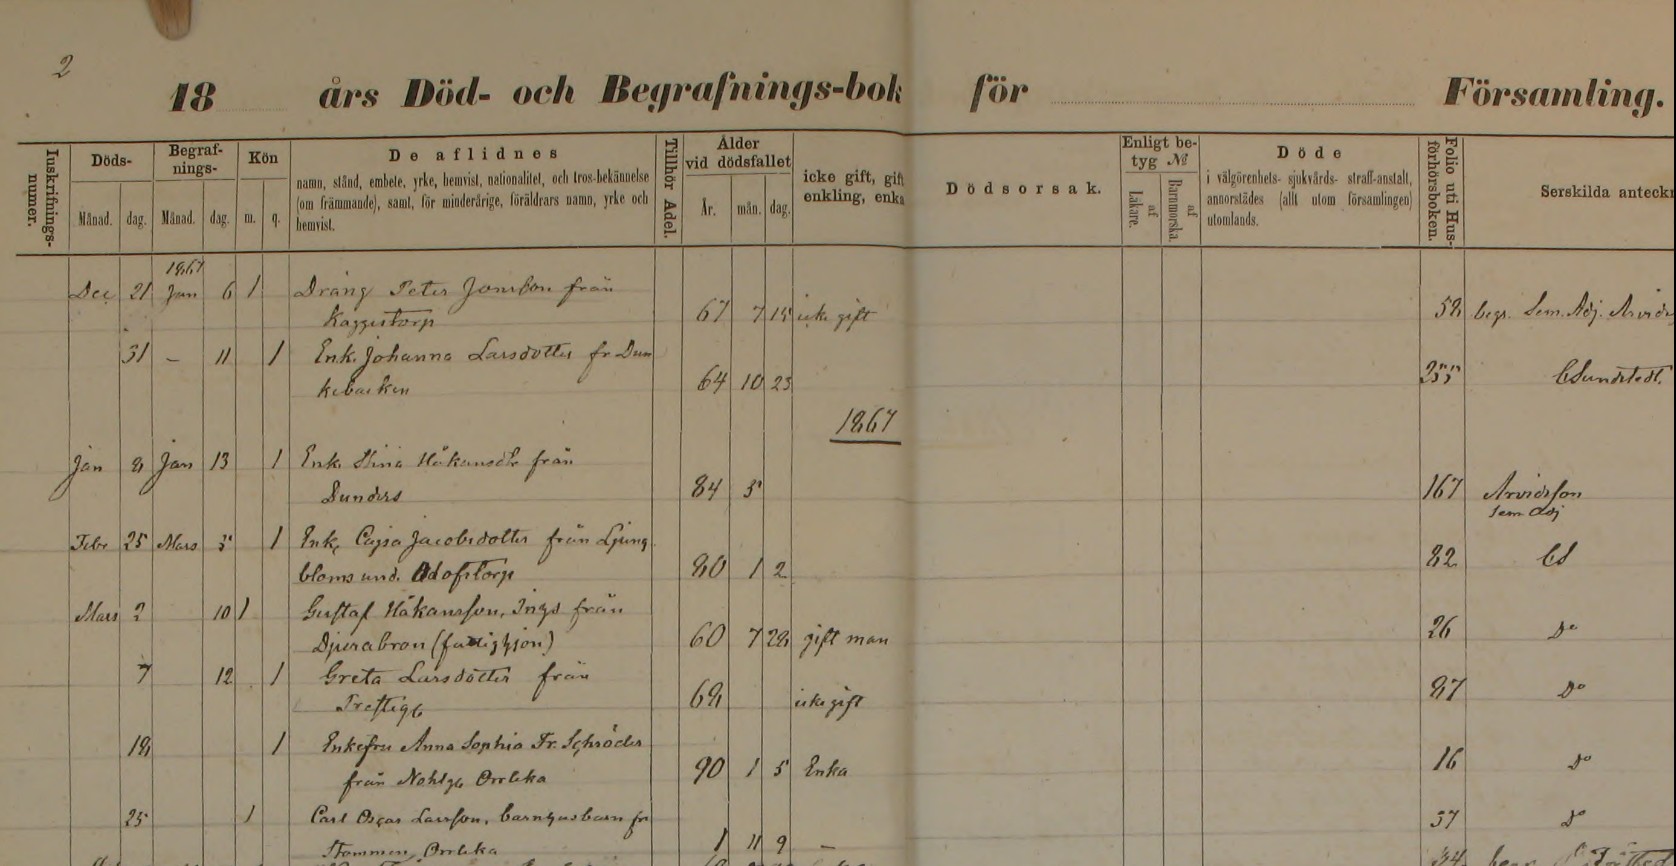 2
18 års Död- och Begrafnings-bok för Församling.
Inskrifnings-numer.
Döds-
Månad. dag.
Begraf-
nings-
Månad. dag.
Kön
m. q.
De aflidnes
namn, stånd, embete, yrke, hemvist, nationalitet, och tros-bekännelse
(om främmande), samt, för minderårige, föräldrars namn, yrke och
hemvist.
Tillhör Adel.
Ålder
vid dödsfallet
År. mån. dag.
icke gift, gift
enkling, enka
Dödsorsak.
Enligt be-
tyg №
af Läkare.
af Barnmorska.
Döde
i välgörenhets- sjukvårds- straff-anstalt,
annorstädes (allt utom församlingen)
utomlands.
Folio uti Hus-
förhörsboken.
Serskilda anteckn
1867
Dec 21 Jan 6 1 Dräng Peter Jonsson från
Kaggetorp 67 7 15 icke gift 58 begr. Sem. Adj. Arvids
31 – 11 1 Enk. Johanna Larsdotter fr Dun
kebacken 64 10 23 255 CSundstedt.
1867
Jan 8 Jan 13 1 Enk. Stina Håkansdr från
Dunders 84 5 167 Arvidsson
Sem Adj
Febr 25 Mars 5 1 Enk. Cajsa Jacobsdotter från Ljung
bloms und. Adofstorp 80 1 2 82 CS
Mars 2 10 1 Gustaf Håkansson, Inys från
Djurabron (fattighjon) 60 7 28 gift man 26 Do
7 12 1 Greta Larsdotter från
68 icke gift 87 Do
18 1 Enkefru Anna Sophia Fr. Schröder
från Orrleka 90 1 5 Enka 16 Do
25 1 Carl Oscar Larsson, barnhusbarn fr
Stommen, Orrleka 1 11 9 – 37 Do
34